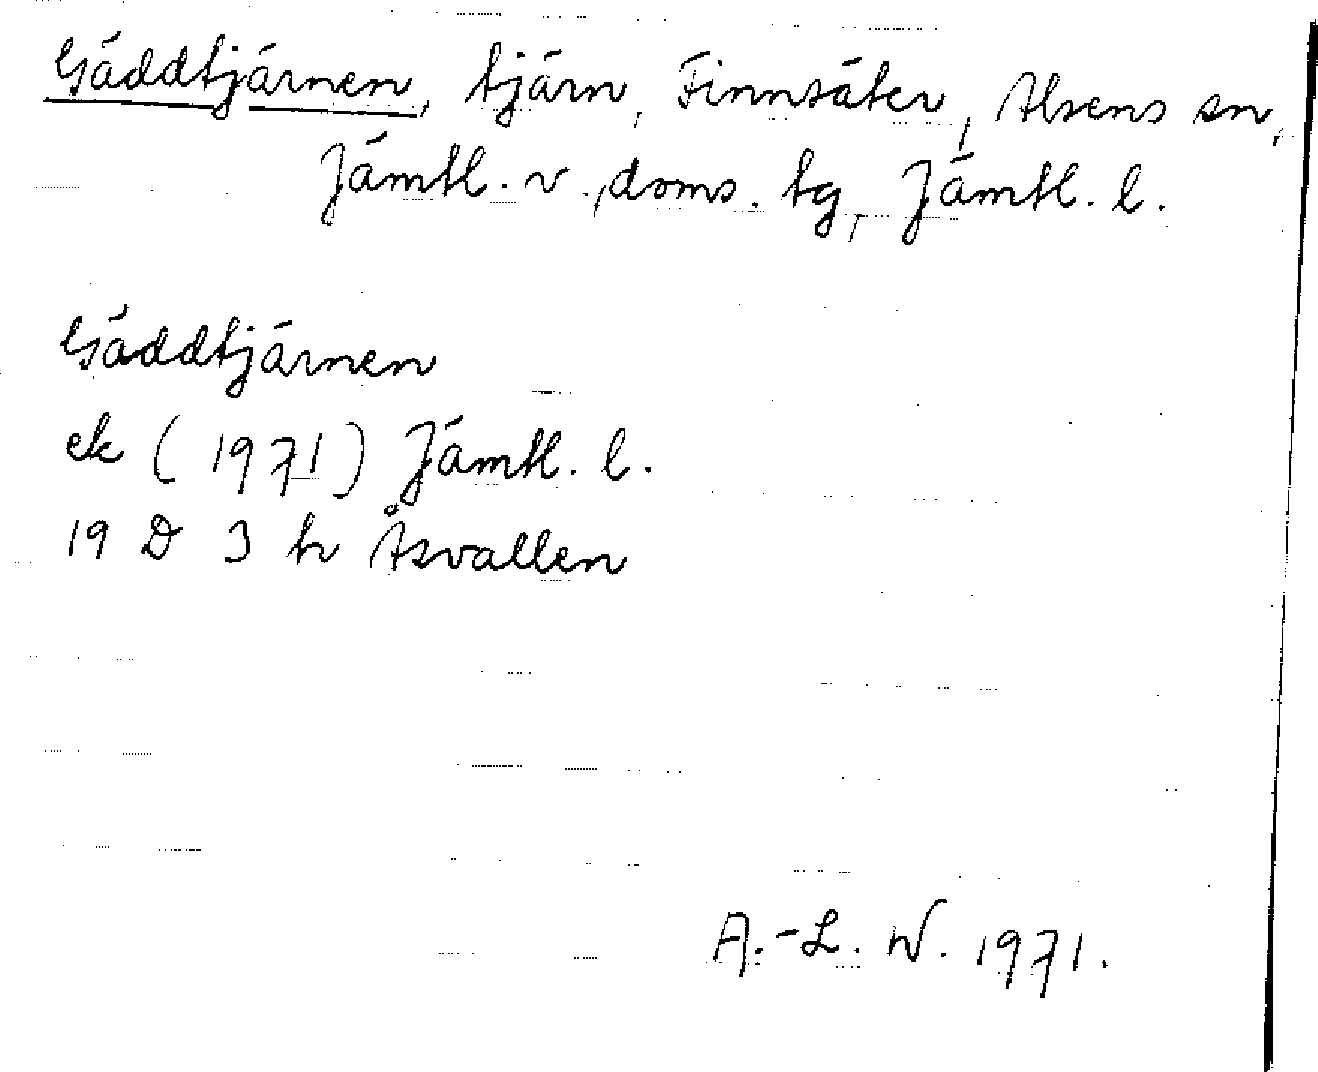 Gäddtjärnen, tjärn, Finnsäter, Alsens sn,
Jämtl. v. doms. tg, Jämtl. l.
Gäddtjärnen
ek (1971) Jämtl. l.
19 D 3 h Åsvallen
A.-L. W. 1971.